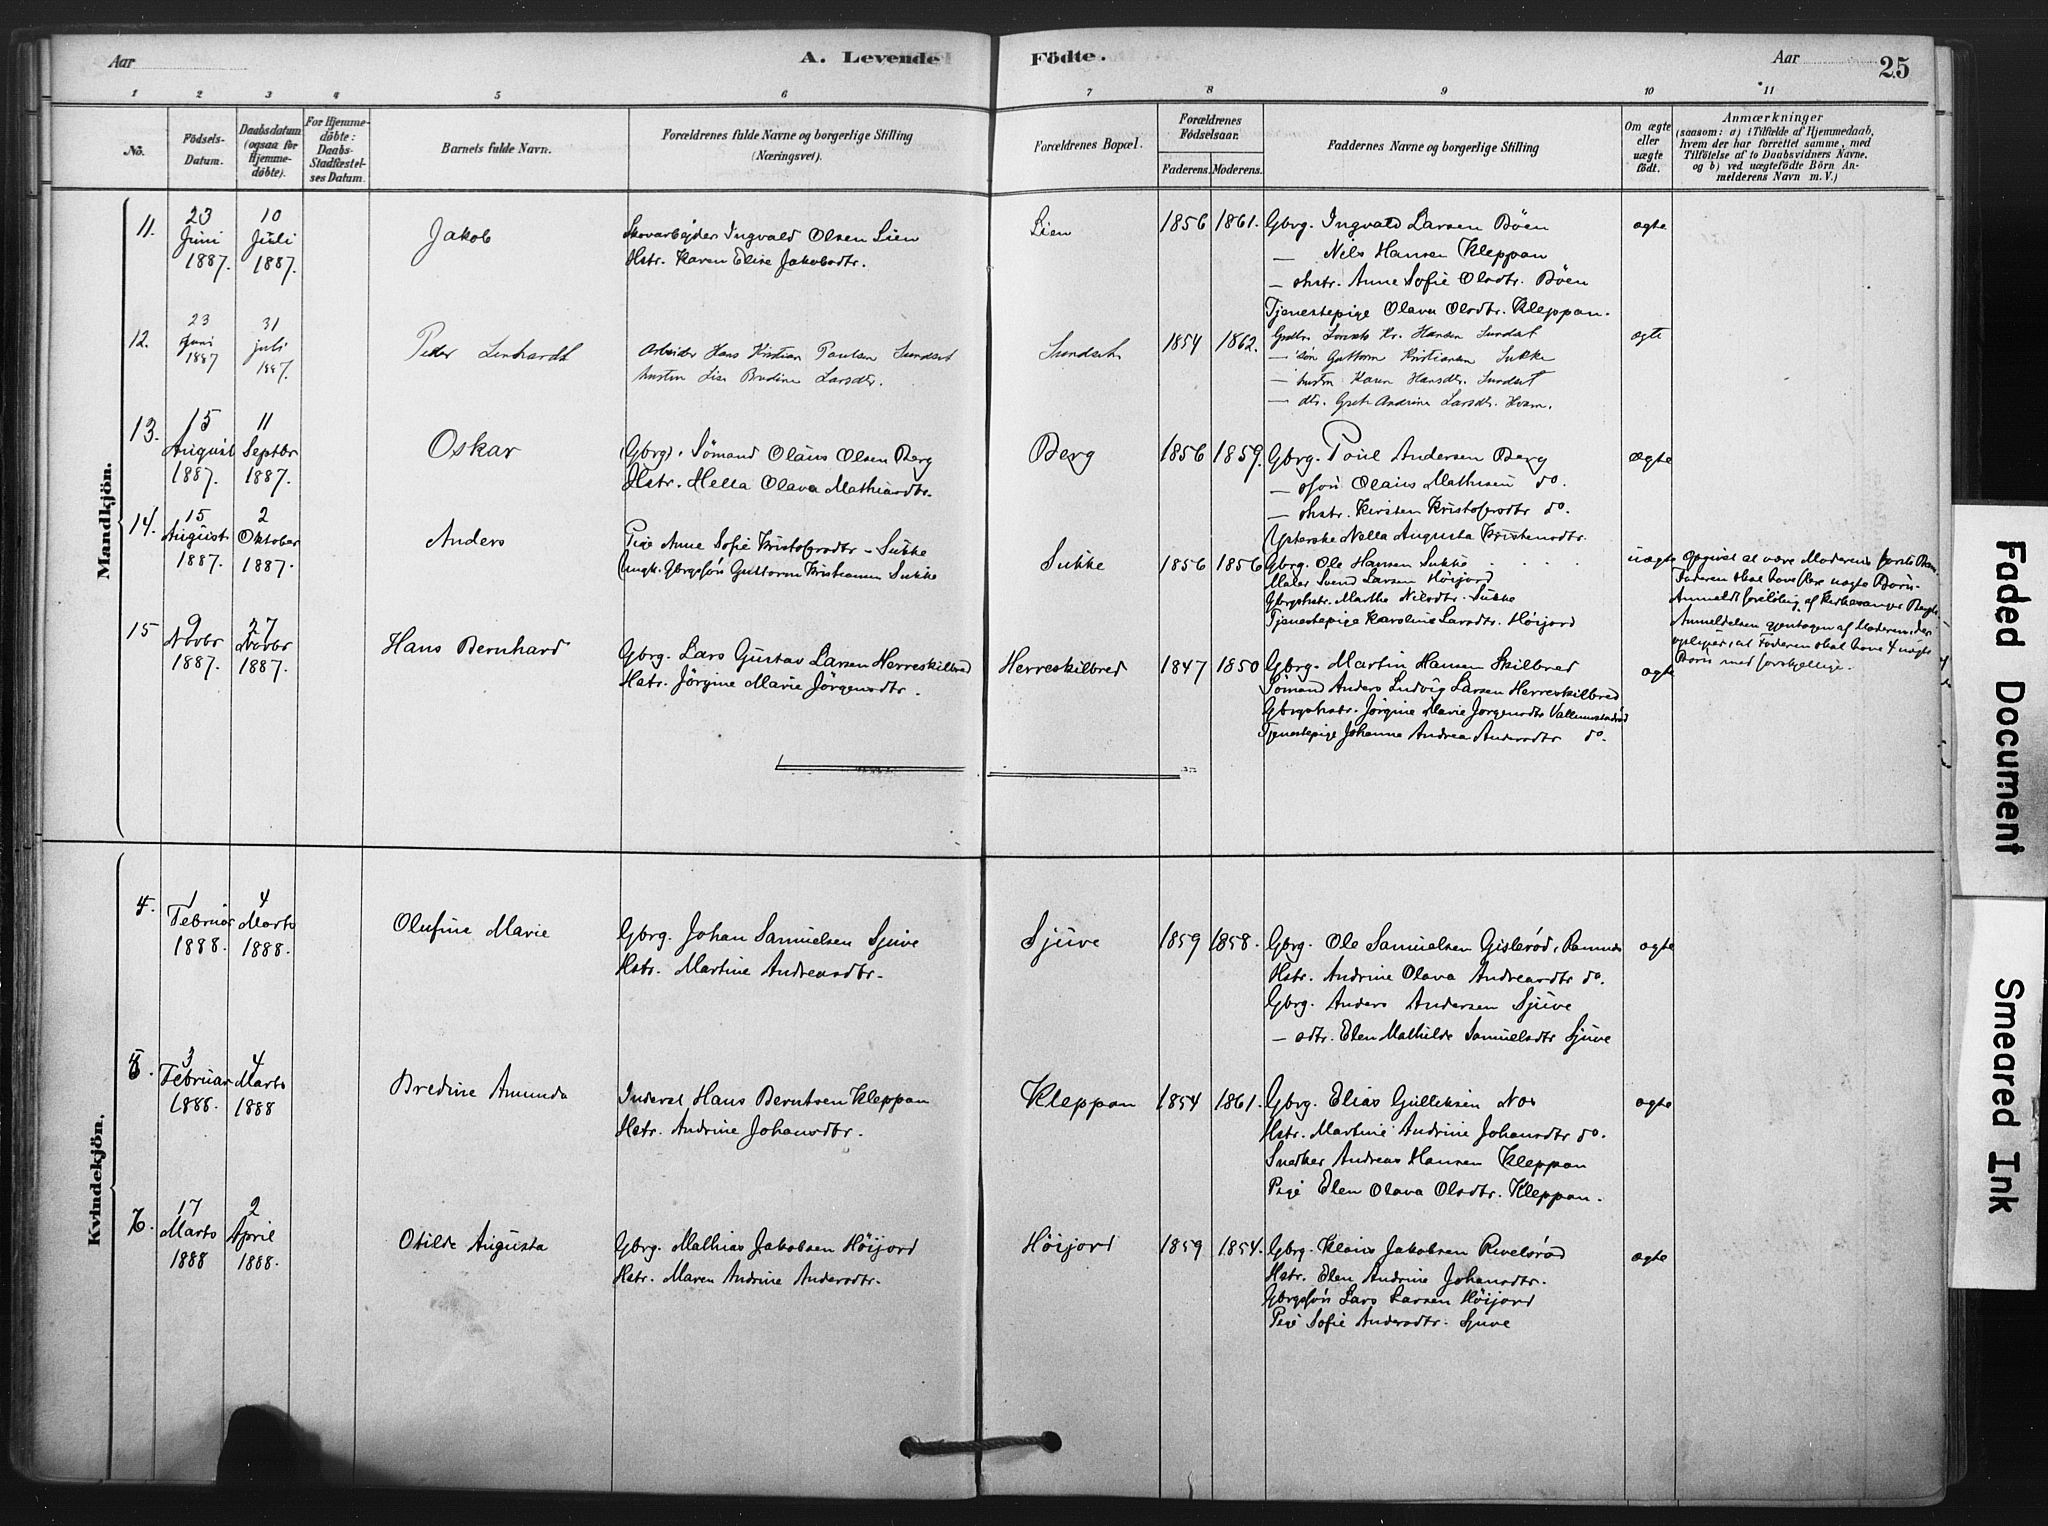 Aar
A. Levende
Födte.
Aar
25
1 2 3 4 5 6 7 8 9 10 11
No.
Födsels-Datum.
Daabsdatum (ogsaa for Hjemmedöbte).
For Hjemmedöbte: Daabs-Stadfæstelses Datum.
Barnets fulde Navn.
Forældrenes fulde Navne og borgerlige Stilling (Næringsvei).
Forældrenes Bopæl.
Forældrenes Födselsaar.
Faderens. Moderens.
Faddernes Navne og borgerlige Stilling
Om ægte eller uægte födt.
Anmærkninger
(saasom: a) i Tilfælde af Hjemmedaab, hvem der har forrettet samme, med Tilföielse af to Daabsvidners Navne, og b) ved uægtefödte Börn Anmelderens Navn m. V.)
Mandkjön.
11.
23 Juni 1887.
10 Juli 1887.
Jakob
Skovarbejder Ingvald Olsen Lien
Hstr. Karen Elise Jakobsdtr.
Lien
1856 1861.
Gbrg. Ingvald Larsen Böen
— Nils Hansen Kleppan
— shstr. Anne Sofie Olsdtr. Böen
Tjenestepige Olava Olsdtr. Kleppan.
ægte
12.
23 Juni 1887
31 juli 1887.
Peder Lenhardt
Arbeider Hans Kristian Paulsen Sundset
hustru Lise Bredine Larsdtr.
Sundset
1854 1862.
Kr. Hansen Sundset
— søn Guttorm Kristiansen Sukke
— hustru Karen Hansdtr. Sundset
— dtr. Andrine Larsdtr. Hvam.
ægte
13.
15 August 1887.
11 Septbr 1887.
Oskar
Gbrg. Sömand Olaus Olsen Berg
Hstr. Mella Olava Mathiasdtr.
Berg
1856 1859.
Gbrg. Poul Andersen Berg
— sön Olaus Mathisen do.
— shstr. Kirsten Kristofersdtr do.
Nella Augusta Kristensdtr.
ægte
14.
15 August 1887.
2 Oktober 1887.
Anders
Pige Anne Sofie Kristofersdtr — Sukke
Ungk. Gbrgsön Guttorm Kristiansen Sukke
Sukke
1856 1856
Gbrg. Ole Hansen Sukke
Maler Svend Larsen Höijord
Gbrgshstr. Marthe Nilsdtr. Sukke
Tjenestepige Karoline Larsdtr. Höijord
uægte
Opgivet at være Moderens første Barn.
Faderen skal have flere uægte Börn.
Anmeldt foreløbig af Kirkesanger
Anmeldelsen gjentagen af Moderen, der
oplyser, at Faderen skal have 4 uægte
Börn med forskjellige.
15
9 Novbr 1887.
27 Novbr 1887.
Hans Bernhard
Gbrg. Lars Gustav Larsen Herreskilbred
Hstr. Jörgine Marie Jörgensdtr.
Herreskilbred
1847 1850
Gbrg. Martin Hansen Skilbred
Sömand Anders Ludvig Larsen Herreskilbred
Gbrgshstr. Jörgine Marie Jörgensdtr
Tjenestepige Johanne Andrea Andersdtr do.
ægte
Kvindekjön.
4.
1 Februar 1888.
4 Marts 1888.
Olufine Marie
Gbrg. Johan Samuelsen Sjuve
Hstr. Martine Andreasdtr.
Sjuve
1859 1858.
Gbrg. Ole Samuelsen Gisleröd, Ramnes
Hstr. Andrine Olava Andreasdtr do.
Gbrg. Anders Andersen Sjuve
— sdtr. Elen Mathilde Samuelsdtr Sjuve
ægte
5.
3 Februar 1888.
4 Marts 1888
Bredine Amunda
Inderst Hans Berntsen Kleppan
Hstr. Andrine Johansdtr.
Kleppan
1854 1861.
Gbrg. Elias Gulliksen Nos
Hstr. Martine Andrine Johansdtr do.
Snedker Andreas Hansen Kleppan
Pige Elen Olava Olsdtr. Kleppan.
ægte
6.
17 Marts 1888
2 April 1888.
Otilde Augusta
Gbrg. Mathias Jakobsen Höijord
Hstr. Maren Andrine Andersdtr.
Höijord
1859 1854.
Gbrg. Klaus Jakobsen Rivelsröd
Hstr. Elen Andrine Johansdtr.
Gbrgsön Lars Larsen Höijord
Pige Sofie Andersdtr. Sjuve
ægte
Faded Document
Smeared Ink